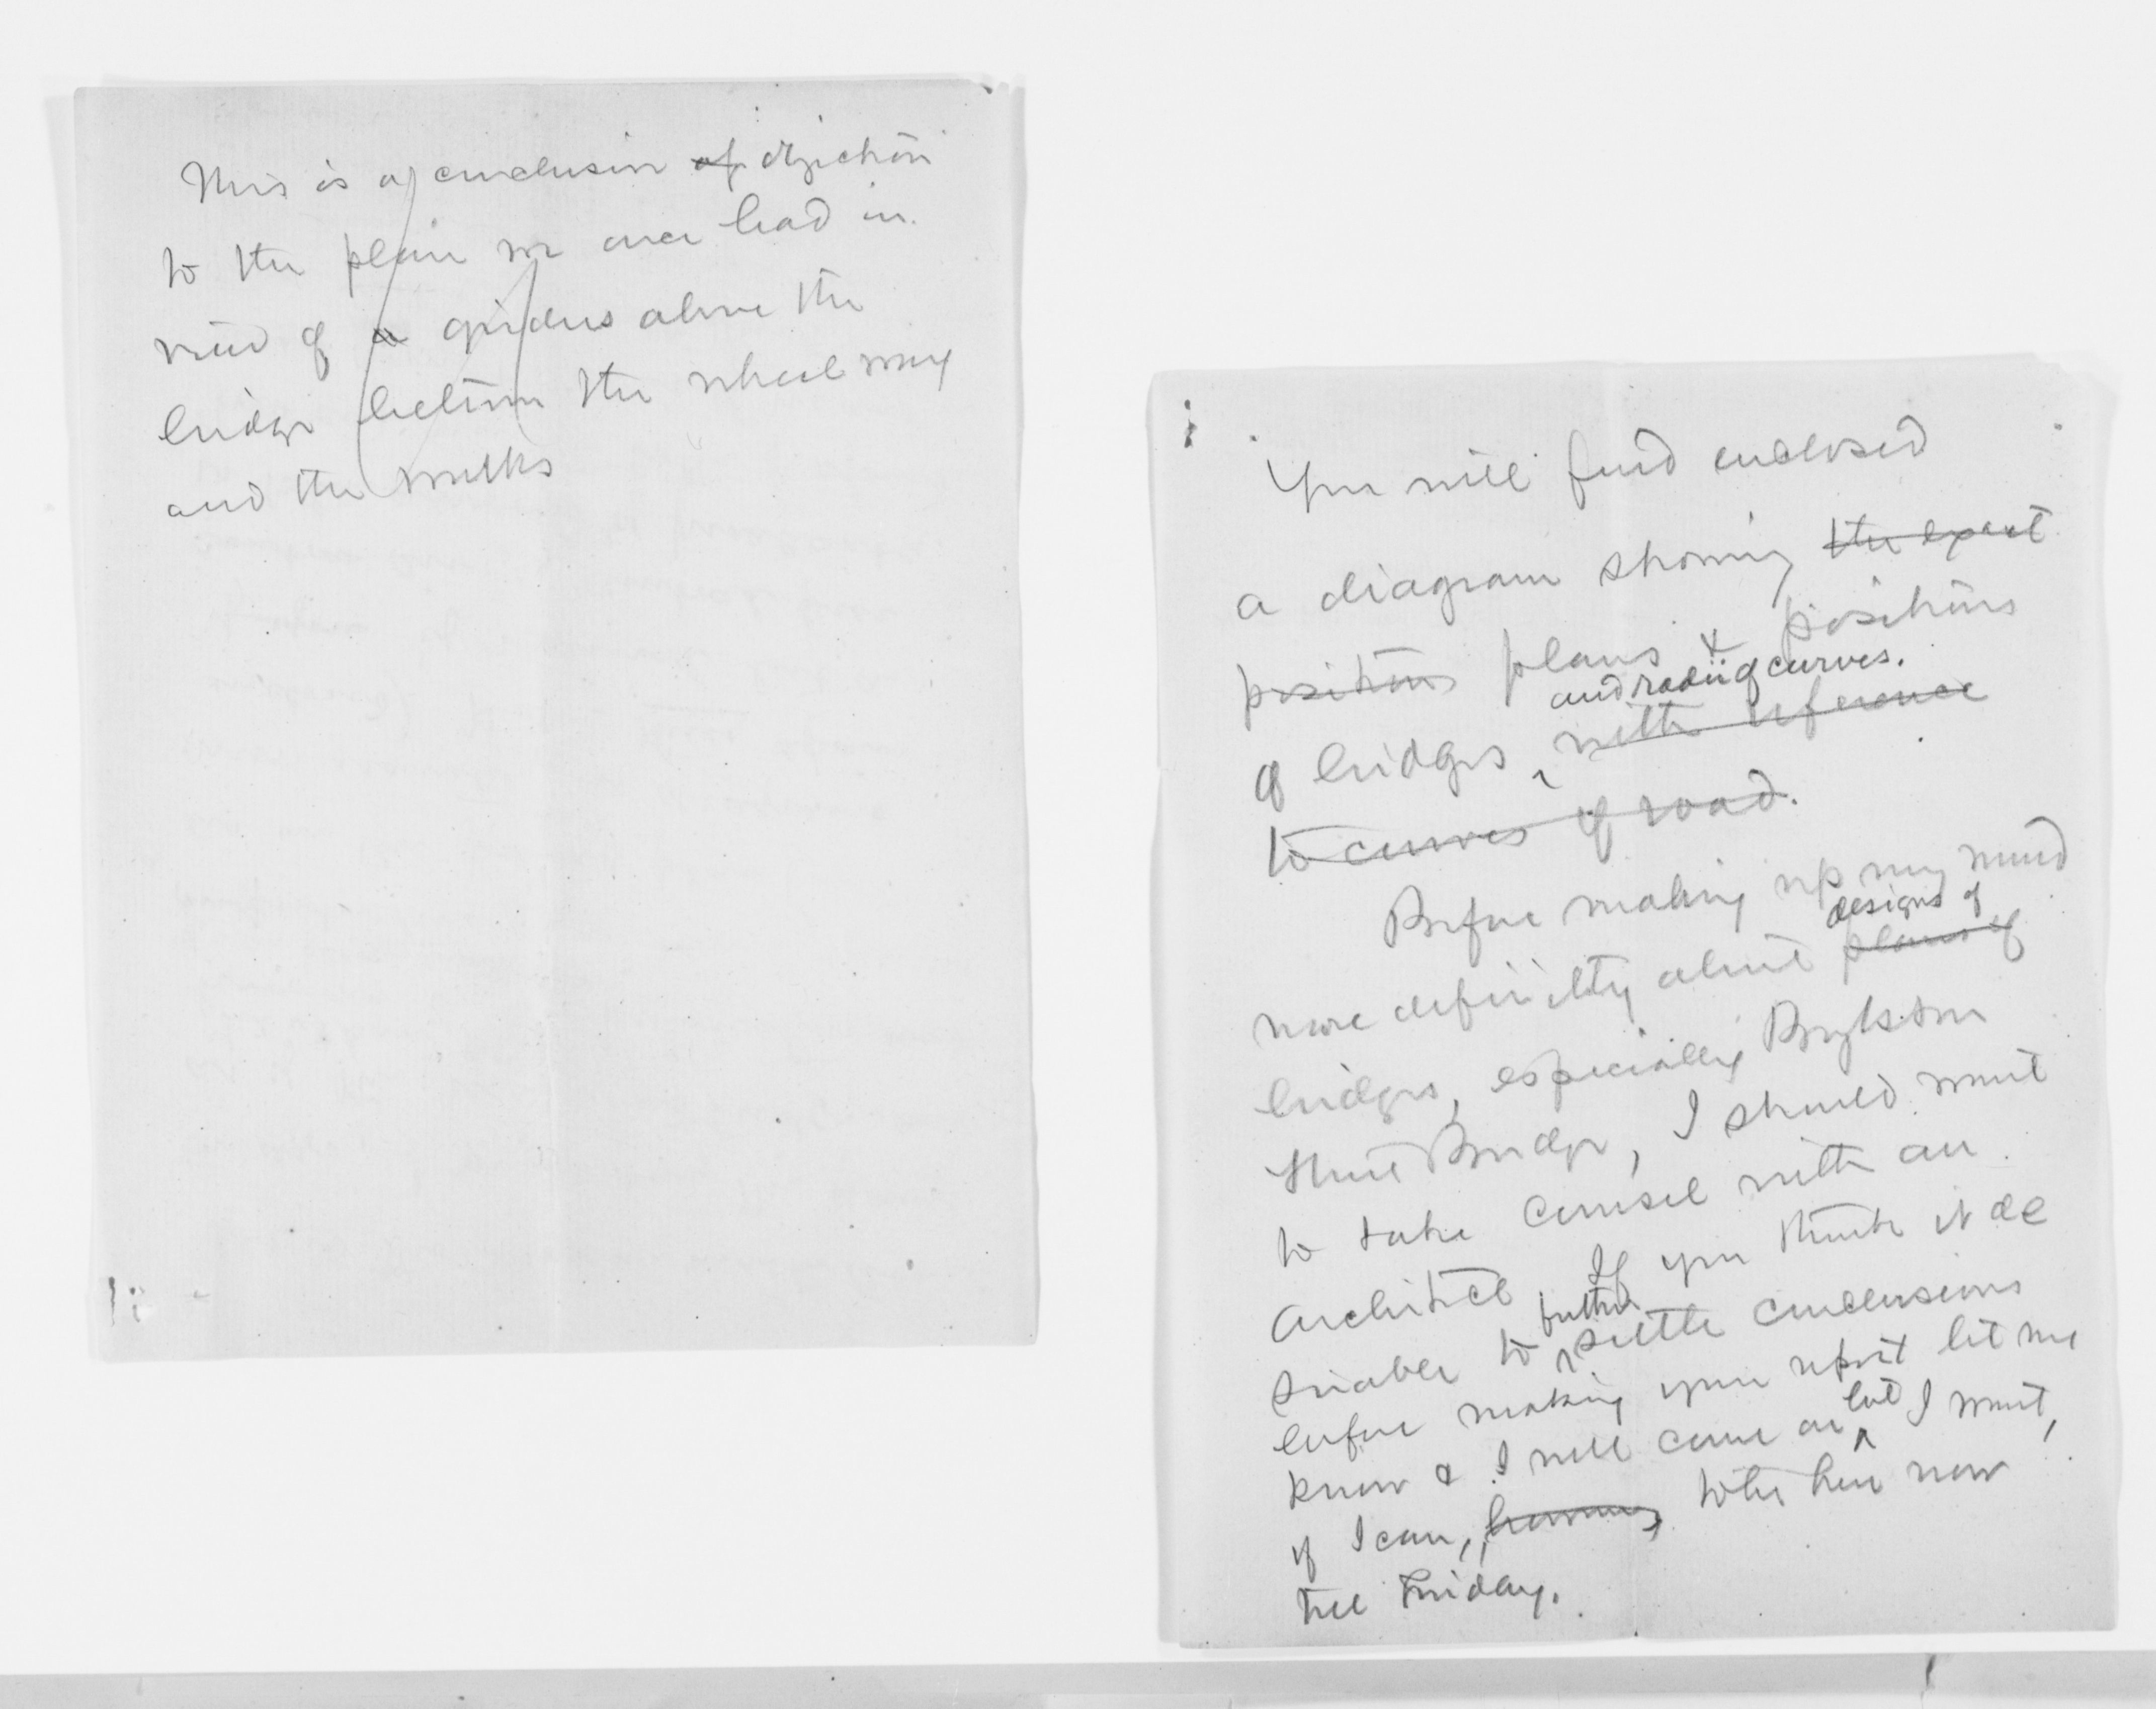 This is a conclusion of objection
to the plan we once had in
view of a girders above the
bridge between the wheel way
and the walks
You will find enclosed
a diagram showing the exact
positions plans & positions
and radii of curves.
of bridges, with reference
to curves of road.
Before making up my mind
designs of
more definitely about plans of
bridges, especially Boylston
Street Bridge, I should want
to take counsel with an
architect. If you think it de
further
sirable to settle conclusions
before making your report let me
but
know & I will come on I want,
if I can, to be here now
till Friday.